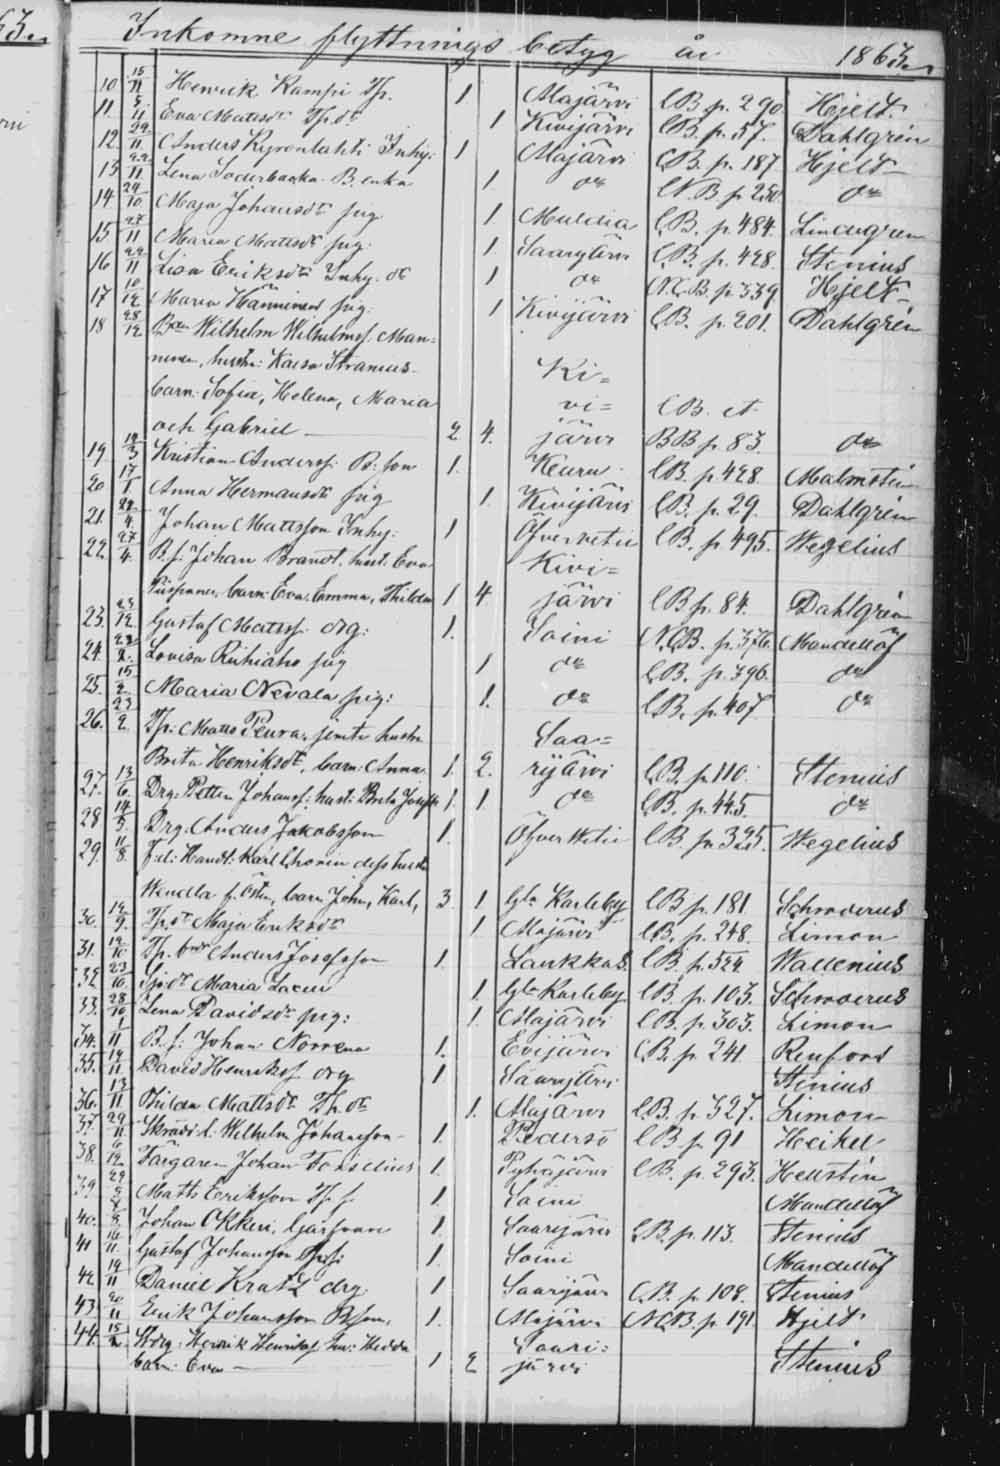 63.
Inkomne flyttnings betyg år 1863.
10 15/11 Henrik Kampi Tp. 1 Alajärvi CB p. 290 Hjelt
11 5/11 Eva Mattsdr Tp. dr 1 Kivijärvi CB. p. 57. Dahlgrén
12. 22/11 Anders Kyrönlahti Inhy: 1 Alajärvi CB. p. 187 Hjelt
13 22/11 Lena Söderbacka B. enka 1 do N.B p 250 do
14 24/10 Maja Johansdr pig 1 Multia CB. p. 484. Lindegren
15 27/11 Maria Mattsdr pig. 1 Saarijärvi CB. p. 428. Stenius
16 22/11 Lisa Eriksdr Inhy. dr 1 do N.C.B. p. 339. Hjelt
17 10/12 Maria Hänninen pig. 1 Kivijärvi CB. p. 201. Dahlgrén
18 28/12 Bdn Wilhelm Wilhelmsf. Man=
ninen, hustru: Kaisa Stranius
barn: Sofia, Helena, Maria Ki=
och Gabriel 2. 4. vi=järvi CB. et BB p. 83. do
19 12/3 Kristian Andersf. B: son 1. Keuru CB. p. 428. Malmstén
20 17/1 Anna Hermansdr pig 1. Kivijärvi CB. p. 29. Dahlgrén
21. 22/4. Johan Mattsson Inhy: 1 Öfvervetil CB. p. 495. Wegelius
22. 27/4. B.f. Johan Brandt. hust. Eva Kivi=
barn: Eva, Emma, Thilda 1 4 järvi CB p. 84. Dahlgrén
23. 23/12. Gustaf Mattsf. drg: 1. Soini N.CB. p. 376. Mandellöf
24. 28/2. Lovisa Riihiaho pig 1 do CB. p. 396. do
25. 15/2. Maria Nevala pig: 1. do CB. p. 407 do
26. 23/2. Tp: Matts Peura, jemte hustru Saa=
Brita Henriksdr, barn: Anna. 1. 2. rijärvi CB. p. 110. Stenius
27. 13/6. Drg: Petter Johansf: hust: Brita Josefs 1. 1. do CB. p. 445. do
28 14/5. Drg. Anders Jakobsson 1. Öfver Vetil CB. p. 325. Wegelius
29. 11/8. Handl: Karl dess hustru
Wendla f. Östn, barn: John, Karl, 3. 1 Gla Karleby CB p. 181. Schroderus
30. 12/9. Tp. dr Maja Eriksdr 1 Alajärvi CB. p. 248. Limon
31. 12/10 Tp. Anders Josefsson 1. Laukkas. CB. p. 524. Wallenius
32. 23/10. Tp: dr Maria 1 Gla Karleby CB. p. 103. Schroderus
33. 28/10 Lena Davidsdr pig: 1. Alajärvi CB. p. 303. Limon
34. 1/11 B.f: Johan Norrena 1. Evijärvi CB. p. 241 Renfors
35. 19/11 David Henriksf drg 1 Saarijärvi Stenius
36. 13/11 Thilda Mattsdr Tp. dr 1. Alajärvi CB. p. 327. Limon
37. 29/11 Skrädd. l: Wilhelm Johansson 1. Pedersö CB p. 91 Heikel
38. 6/12 Färgaren Johan 1. Pyhäjärvi CB. p. 293. Hellstén
39 29/9 Matts Eriksson Tp. f. 1. Soini Mandellöf
40. 5/8. Johan Okkeri, Garfvare 1. Saarijärvi CB. p. 113. Stenius
41 16/11. Gustaf Johansson 1. Soini Mandellöf
42. 19/11 Daniel Kratz drg 1 Saarijärvi CB. p. 108. Stenius
43. 20/11 Erik Johansson Bson, 1. Alajärvi NCB. p. 191 Hjelt
44. 15/2 Henrik Henriksf hu: Hedda Saari:
barn: Eva 1 2 järvi Stenius